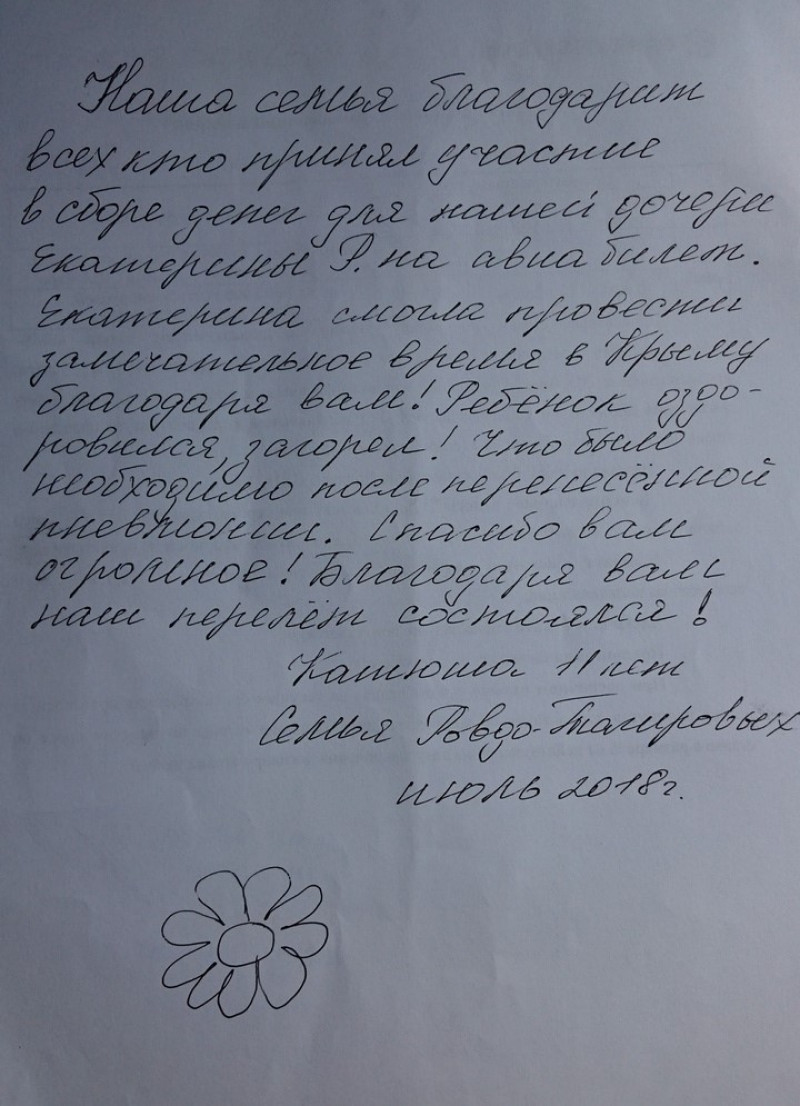 Наша семья благодарит
всех кто принял участие
в сборе денег для нашей дочери
Екатерины Р. на авиабилет.
Екатерина смогла провести
замечательное время в Крыму
благодаря вам! Ребёнок оздо-
ровился, загорел! Что было
необходимо после перенесённой
пневмонии. Спасибо вам
огромное! Благодаря вам
наш перелёт состоялся!
Катюша 11 лет
Семья Ровдо-Тагировых
июль 2018г.